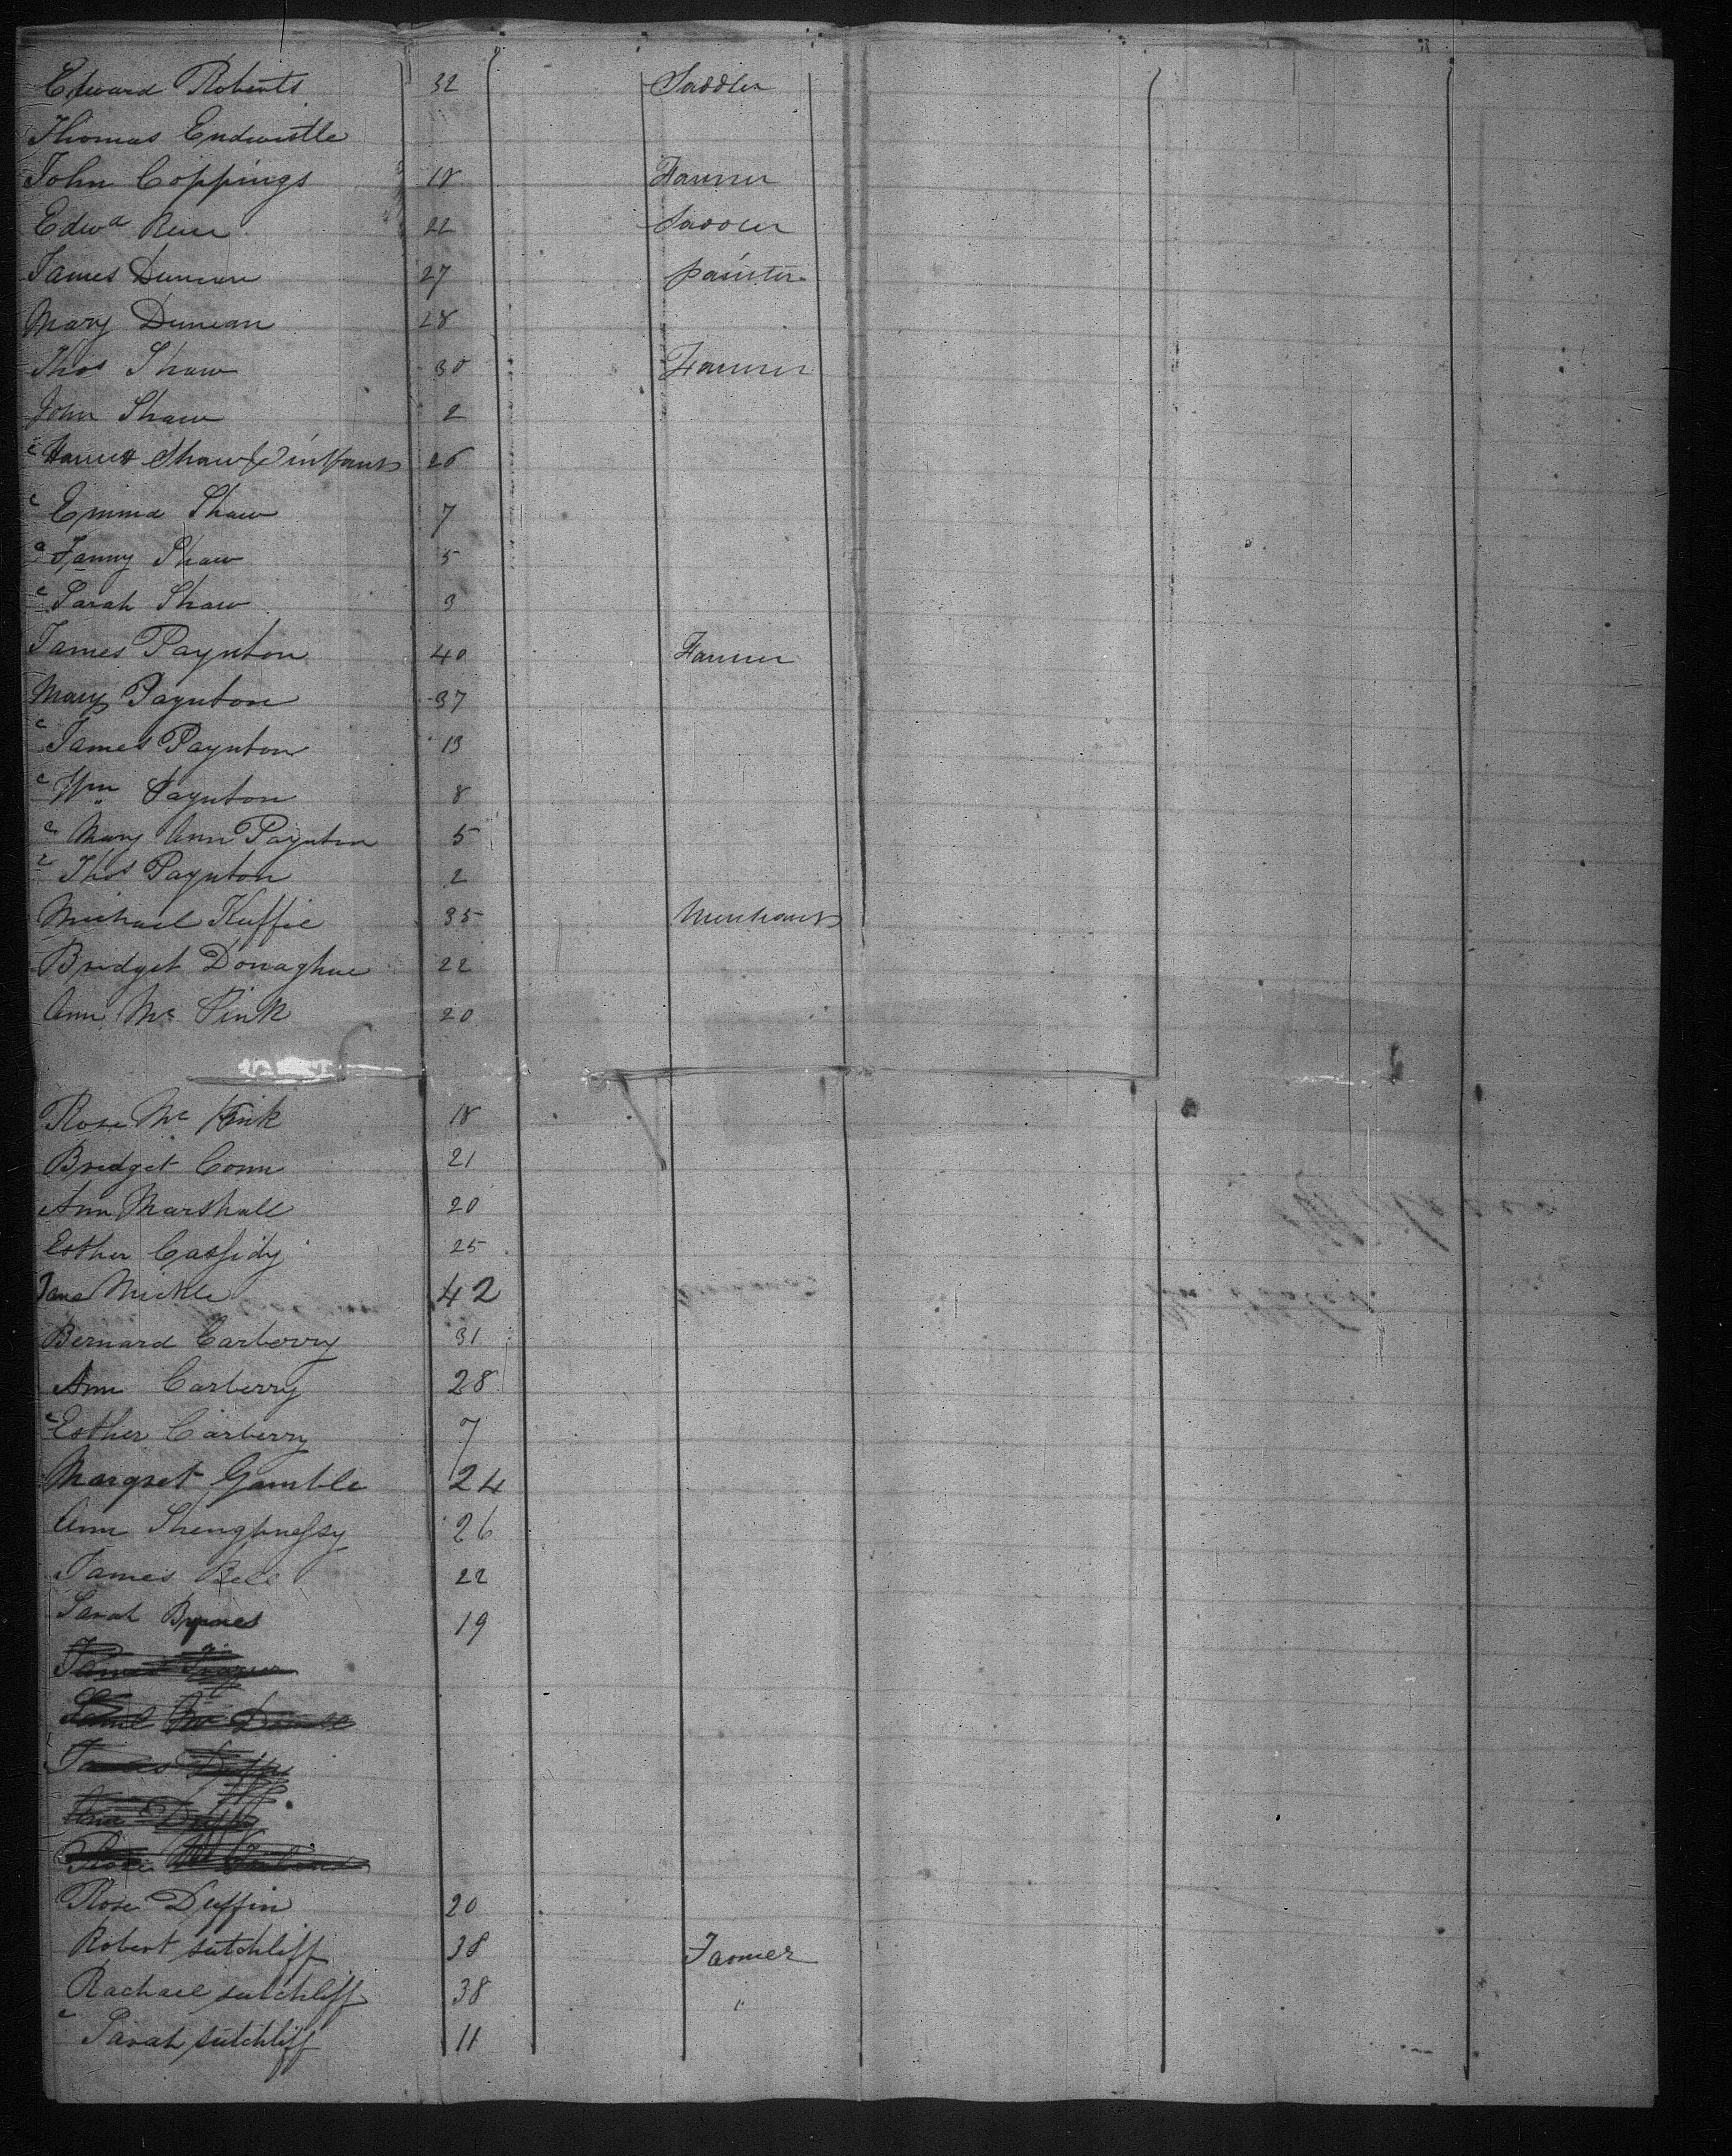 Edward Roberts 32 Saddler
Thomas Endwistle
John Coppings 18 Farmer
Edwd 22 Saddler
James Duncan 27 painter
Mary Duncan 28
Thos Shaw 30 Farmer
John Shaw 2
c Harriet Shaw & infant 26
c Emma Shaw 7
c Fanny Shaw 5
c Sarah Shaw 3
James Paynton 40 Farmer
Mary Paynton 37
c James Paynton 13
c Wm Paynton 8
c Mary Ann Paynton 5
c Thos Paynton 2
Michael Kuffie 35 Merchant
Bridget Donaghue 22
Ann Mc 20
Rose Mc 18
Bridget Conn 21
Ann Marshall 20
Esther Cassidy 25
Jane Mickle 42
Bernard Carberry 31
Ann Carberry 28
c Esther Carberry 7
Margret Gamble 24
Ann Shenghnessy 26
James Bell 22
Sarah Byrnes 19
James
Saml Mc
James Duffy
Duffy
Rose Mc
Rose Duffin 20
Robert sutchliff 38 Farmer
Rachael sutchliff 38 "
c Sarah sutchliff 11